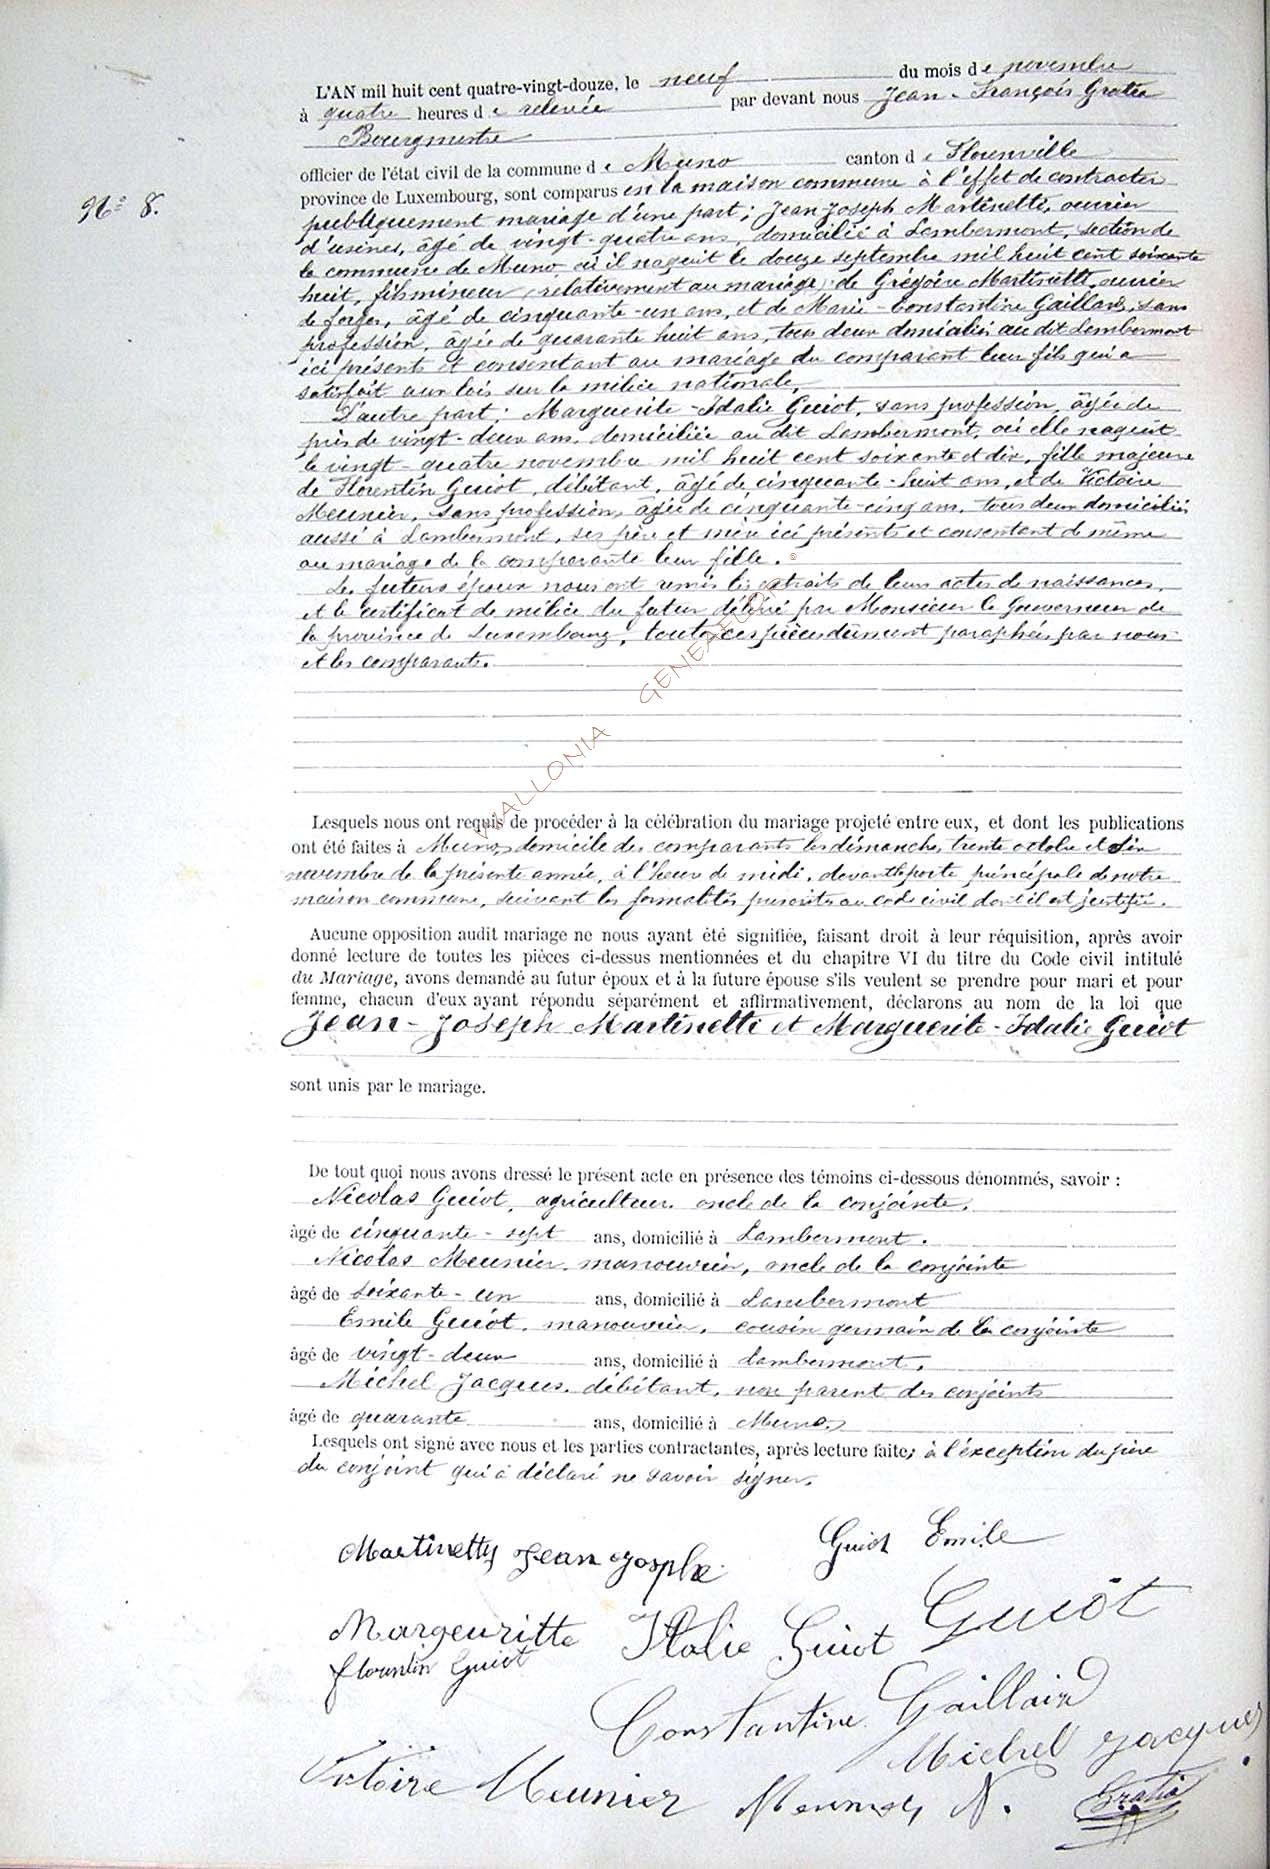 L'AN mil huit cent quatre-vingt-douze, le neuf du mois de novembre
à quatre heures de relevée par devant nous Jean-François Gratia
Bourgmestre
officier de l'état civil de la commune de Muno canton de Florenville
N° 8.
province de Luxembourg, sont comparus en la maison commune à l'effet de contracter
publiquement mariage d'une part; Jean Joseph Martinetti, ouvrier
d'usines, âgé de vingt-quatre ans, domicilié à Lambermont, section de
la commune de Muno où il naquit le douze septembre mil huit cent soixante
huit, fils mineur (relativement au mariage) de Grégoire Martinetti, ouvrier
de forges, âgé de cinquante-un ans, et de Marie-Constantine Gaillard, sans
profession, âgée de quarante huit ans, tous deux domiciliés au dit Lambermont
ici présents et consentant au mariage du comparant leur fils qui a
satisfait aux lois sur la milice nationale,
D'autre part; Marguerite-Idalie Guiot, sans profession, âgée de
près de vingt-deux ans, domiciliée au dit Lambermont, où elle naquit
le vingt-quatre novembre mil huit cent soixante et dix, fille majeure
de Florentin Guiot, débitant, âgé de cinquante-huit ans, et de Victoire
Meunier, sans profession, âgée de cinquante-cinq ans, tous deux domiciliés
aussi à Lambermont, ses père et mère ici présents et consentant de même
au mariage de la comparante leur fille.
Les futurs époux nous ont remis les extraits de leurs actes de naissances,
et le certificat de milice du futur délivré par Monsieur le Gouverneur de
la province de Luxembourg, toutes ces pièces dûment paraphées par nous
et les comparants.
WALLONIA GENEALOR
Lesquels nous ont requis de procéder à la célébration du mariage projeté entre eux, et dont les publications
ont été faites à Muno, domicile des comparants les dimanches trente octobre et six
novembre de la présente année, à l'heure de midi, devant la porte principale de notre
maison commune, suivant les formalités prescrites au code civil dont il est justifié.
Aucune opposition audit mariage ne nous ayant été signifiée, faisant droit à leur réquisition, après avoir
donné lecture de toutes les pièces ci-dessus mentionnées et du chapitre VI du titre du Code civil intitulé
du Mariage, avons demandé au futur époux et à la future épouse s'ils veulent se prendre pour mari et pour
femme, chacun d'eux ayant répondu séparément et affirmativement, déclarons au nom de la loi que
Jean-Joseph Martinetti et Marguerite-Idalie Guiot
sont unis par le mariage.
De tout quoi nous avons dressé le présent acte en présence des témoins ci-dessous dénommés, savoir :
Nicolas Guiot, agriculteur, oncle de la conjointe,
âgé de cinquante-sept ans, domicilié à Lambermont.
Nicolas Meunier, manouvrier, oncle de la conjointe
âgé de soixante-un ans, domicilié à Lambermont
Emile Guiot, manouvrier, cousin germain de la conjointe
âgé de vingt-deux ans, domicilié à Lambermont,
Michel Jacques, débitant, non parent des conjoints
âgé de quarante ans, domicilié à Muno,
Lesquels ont signé avec nous et les parties contractantes, après lecture faite; à l'exception du père
du conjoint qui a déclaré ne savoir signer.
Martinetty Jean Josphe Guiot Emile
Margeuritte Italie Guiot Guiot
Florentin Guiot
Constantine Gaillaird
Michel Jacques
Victoire Meunier Meunier N. Gratia